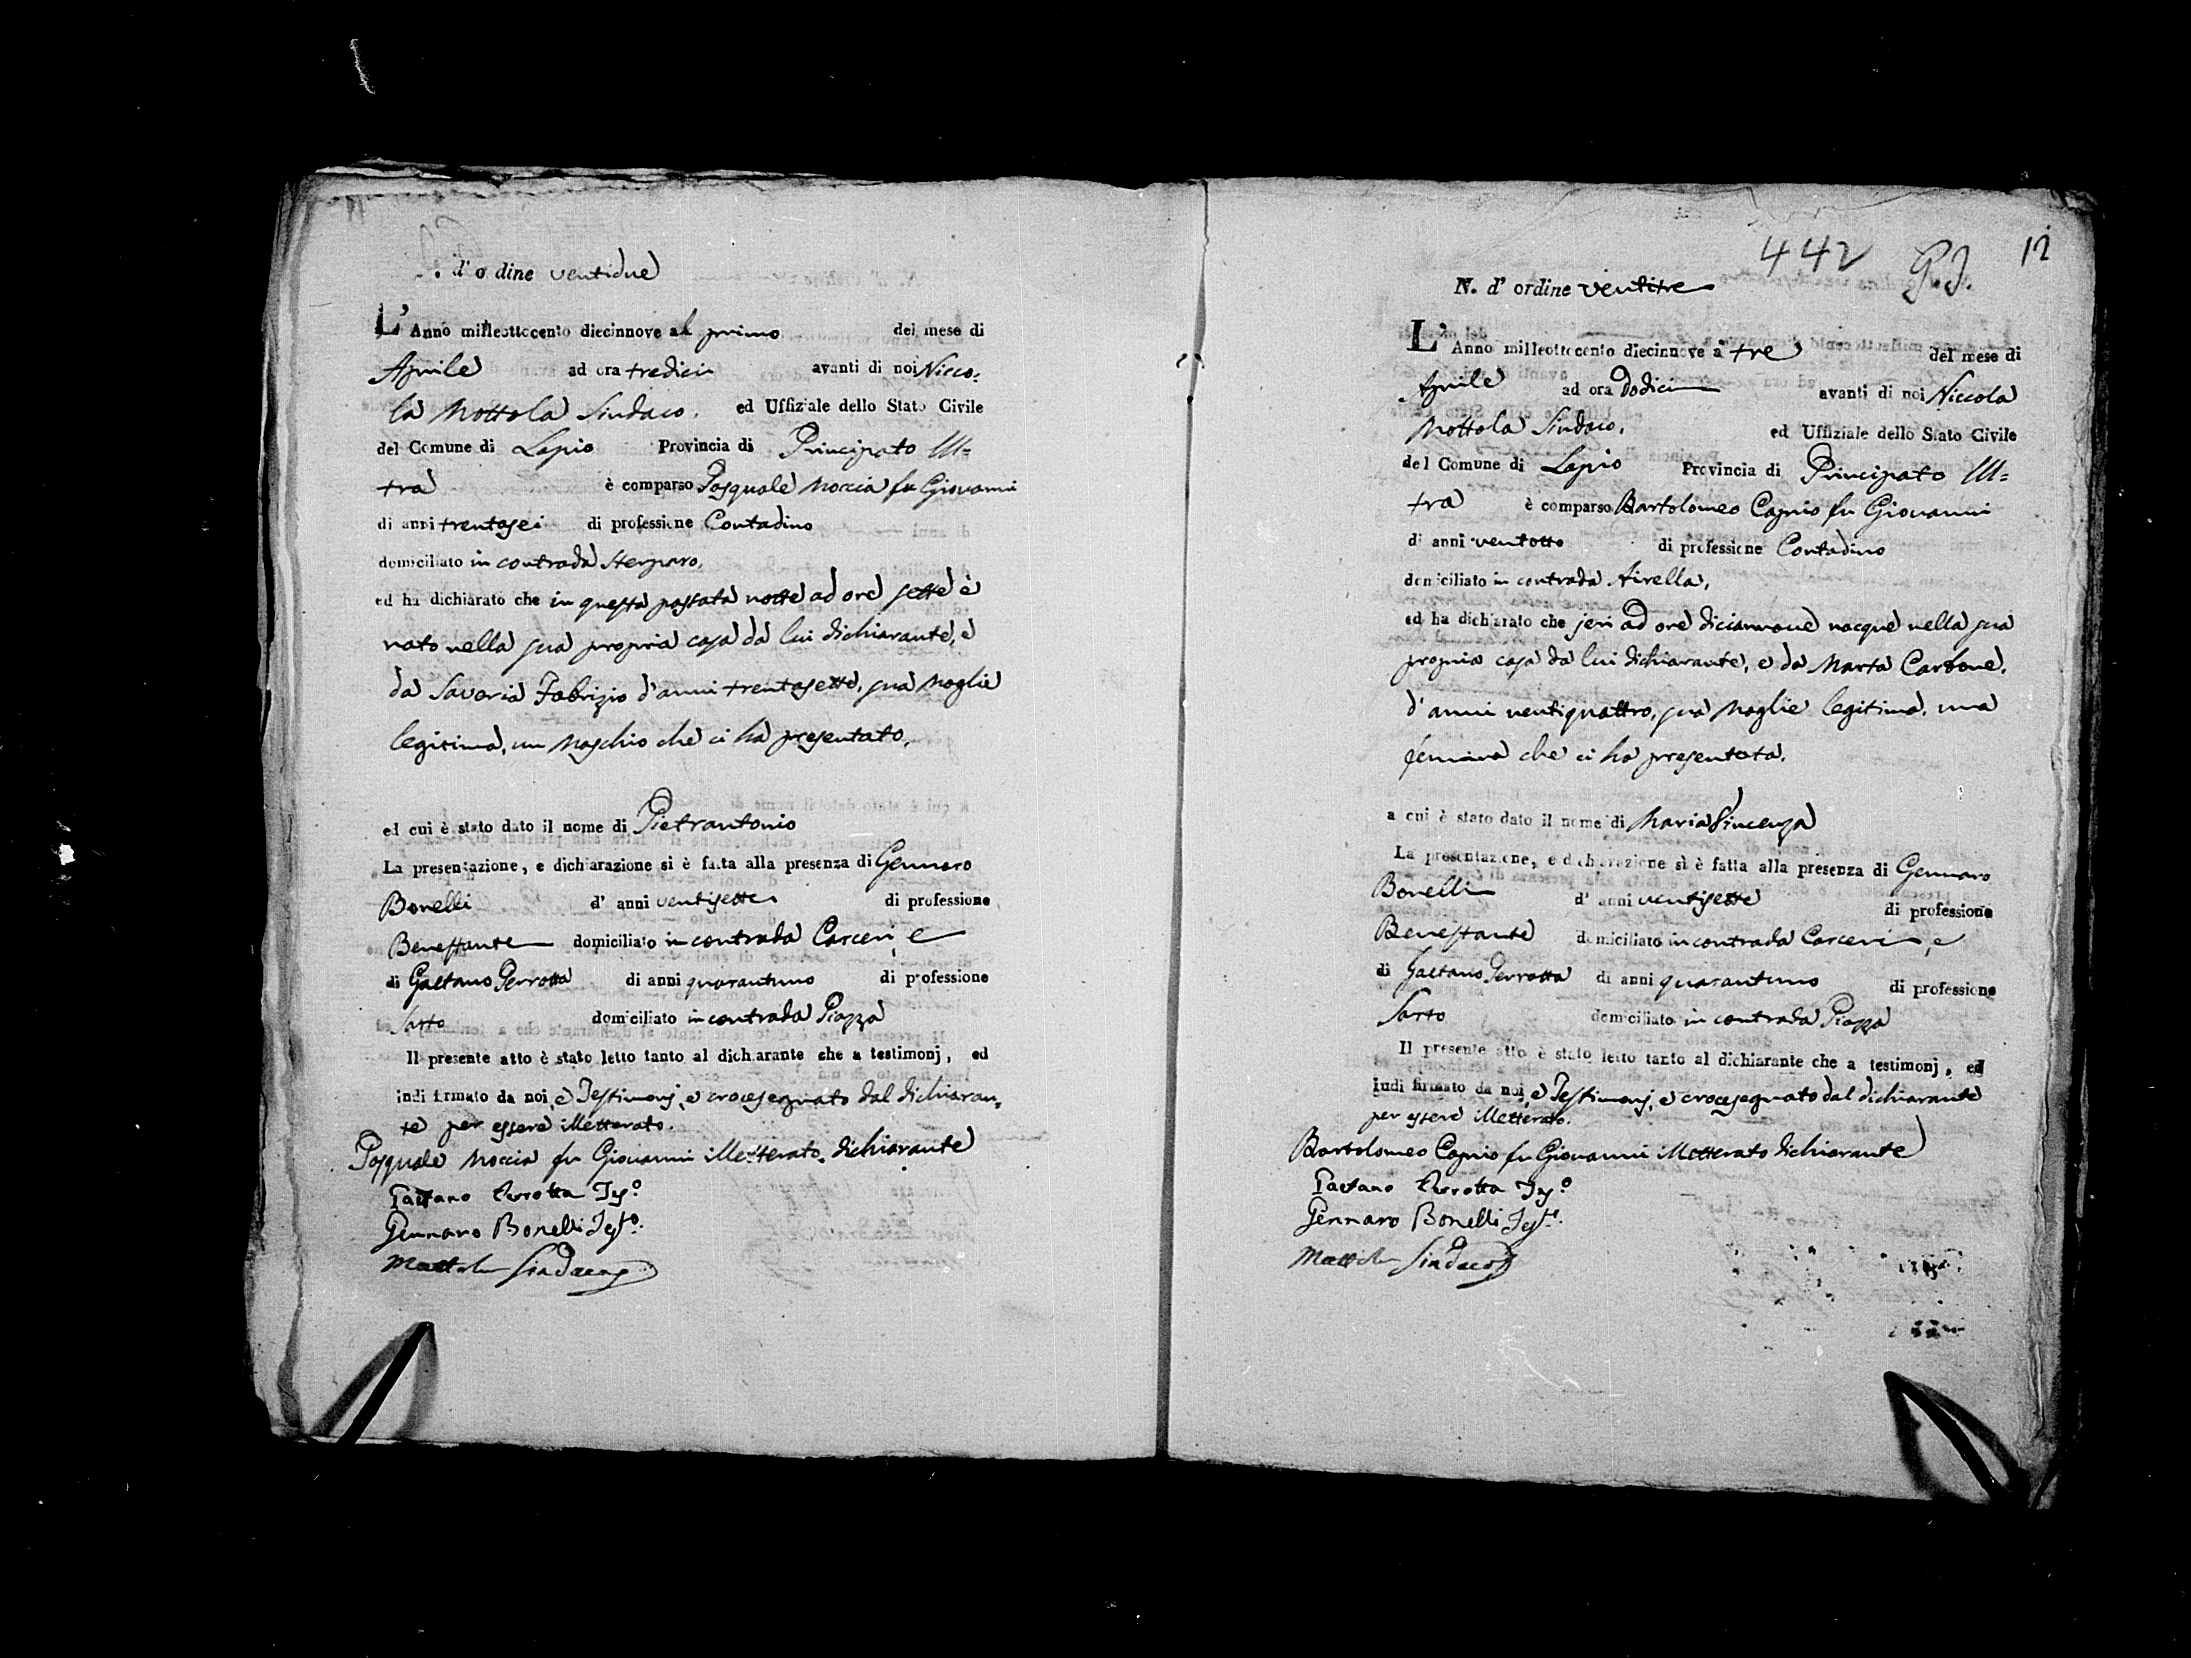 . d' o dine ventidue
L' Anno milleottocento diecinnove al primo del mese di
Aprile ad ora tredici avanti di noi Nicco:
la Mottola Sindaco. ed Uffiziale dello Stato Civile
del Comune di Lapio Provincia di Principato Ul=
tra è comparso Pasquale Moccia fu Giovanni
di anni trentasei di professione Contadino
domiciliato in contrada Sterparo,
ed ha dichiarato che in questa passata notte ad ore sette è
nato nella sua propria casa da lui dichiarante, e
da Saveria Fabrizio d'anni trentasette, sua Moglie
legitima, un Maschio che ci ha presentato,
ed cui è stato dato il nome di Pietrantonio
La presentazione, e dichiarazione si è fatta alla presenza di Gennaro
Bonelli d' anni ventisette di professione
Benestante domiciliato in contrada Carceri, e
di Gaetano Perrotta di anni quarantuno di professione
Sarto domiciliato in contrada Piazza
Il presente atto è stato letto tanto al dichiarante che a testimonj, ed
indi firmato da noi, e Testimonj, e crocesegnato dal dichiaran=
te per essere illetterato.
Pasquale Moccia fu Giovanni illetterato dichiarante
Gaetano Perrotta Tes.º
Gennaro Bonelli Test.º
Mottola Sindaco
442 G.J. 12
N. d' ordine ventitre
L' Anno milleottocento diecinnove a tre del mese di
Aprile ad ora Dodici avanti di noi Niccola
Mottola Sindaco, ed Uffiziale dello Stato Civile
del Comune di Lapio Provincia di Principato Ul=
tra è comparso Bartolomeo Caprio fu Giovanni
di anni ventotto di professione Contadino
domiciliato in contrada Airella,
ed ha dichiarato che jeri ad ore diciannove nacque nella sua
propria casa da lui dichiarante, e da Marta Carbone,
d'anni ventiquattro, sua Moglie legitima, una
femina che ci ha presentata.
a cui è stato dato il nome di Maria Vincenza
La presentazione, e dichiarazione si è fatta alla presenza di Gennaro
Bonelli d' anni ventisette di professione
Benestante domiciliato in contrada Carceri, e
di Gaetano Perrotta di anni quarantuno di professione
Sarto domiciliato in contrada Piazza
Il presente atto è stato letto tanto al dichiarante che a testimonj, ed
indi firmato da noi, e Testimonj, e crocesegnato dal dichiarante
per essere illetterato.
Bartolomeo Caprio fu Giovanni illetterato dichiarante
Gaetano Perrotta Tes.º
Gennaro Bonelli Test.º
Mottola Sindaco